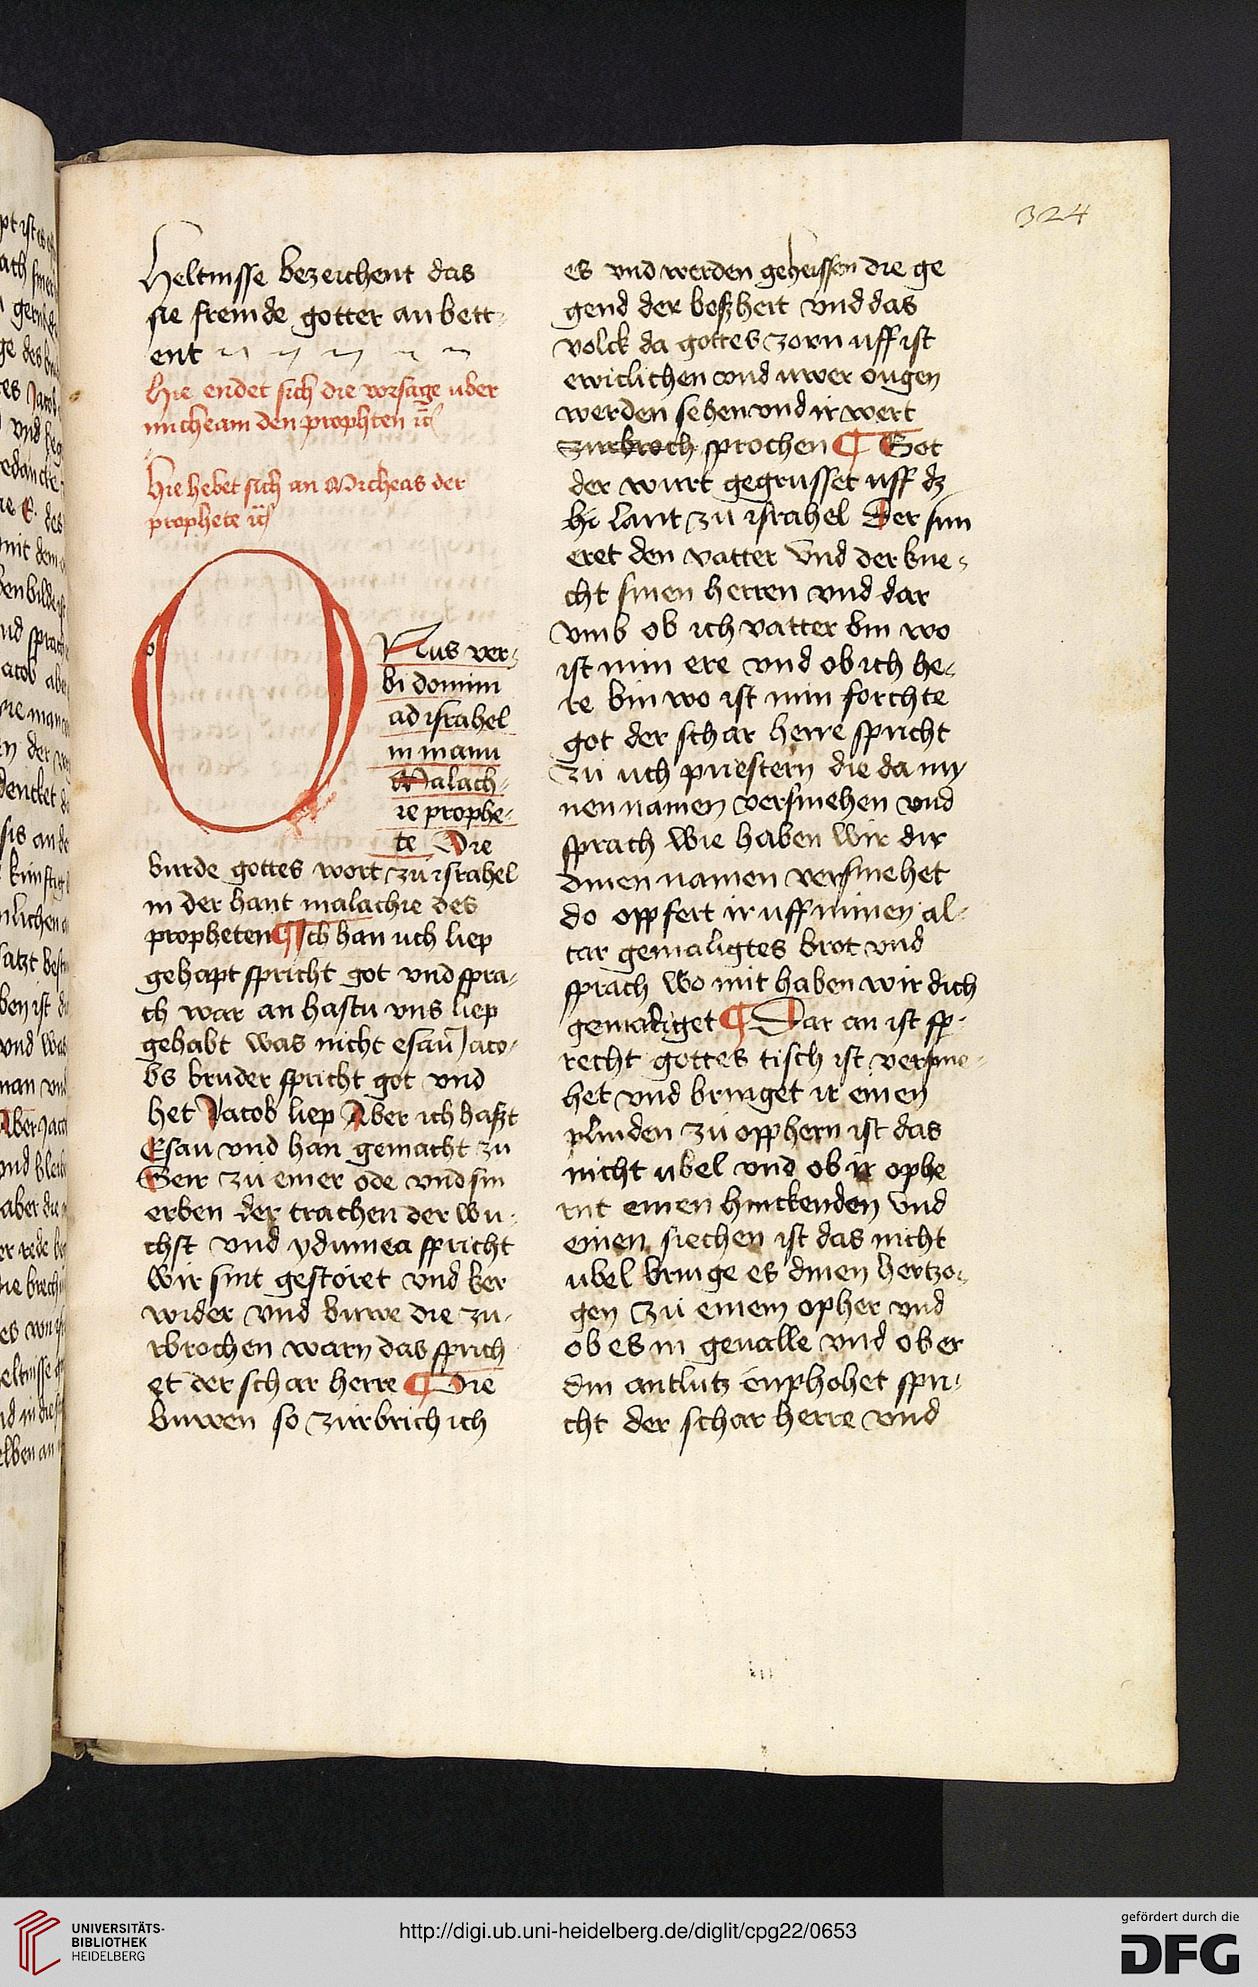 324
heltnisse bezeichent das
sie fremde gotter an bett-
ent
Hie endet sich die vorsage uber
micheam den propheten
Hie hebet sich an Micheas der
prophete
ONus ver-
bi domini
ad israhel
in manu
Malach-
ie prophe-
te Die
burde gottes wort zu israhel
in der hant malachie des
propheten ¶ Ich han uch liep
gehapt spricht got vnd spra-
ch war an hastu vns liep
gehabt was nicht esau Jaco-
bs bruder spricht got vnd
het Jacob liep Aber ich haszt
Esau vnd han gemacht zu
Seir zu einer ode vnd sin
erben der trachen der wu-
chst vnd ydumea spricht
wir sint gestoret vnd ker
wider vnd buwe die zu-
rbrochen warn das sprich
et der schar herre ¶ Die
buwen so zurbrich ich
es vnd werden geheissen die ge
gend der boszheit vnd das
volck da gottes zorn uff ist
ewiclichen vnd uwer ougen
werden sehen vnd ir wert
zurbroch sprochen ¶ Got
der wurt gegrusset uff dz
hi lant zu israhel Der sun
eret den vatter vnd der kne-
cht sinen herren vnd dar
vmb ob ich vatter bin wo
ist min ere vnd ob ich he-
re bin wo ist min forchte
got der schar herre spricht
zu uch priestern die da my
nen namen versmehen vnd
sprach wie haben wir dir
dinen namen versmehet
do oppfert ir uff minen al-
tar gemaligtes brot vnd
sprach wo mit haben wir dich
gemaliget ¶ Dar an ist sp-
recht gottes tisch ist versme-
het vnd bringet ir einen
plinden zu opphern ist das
nicht ubel vnd ob ir ophe
rnt einen hinckenden vnd
einen siechen ist das nicht
ubel bringe es dinen hertzo-
gen zu einem opher vnd
ob es in geualle vnd ob er
din antlutz enphohet spri-
cht der schar herre vnd
UNIVERSITÄTS-
BIBLIOTHEK
HEIDELBERG
http://digi.ub.uni-heidelberg.de/diglit/cpg22/0653
gefördert durch die
DFG